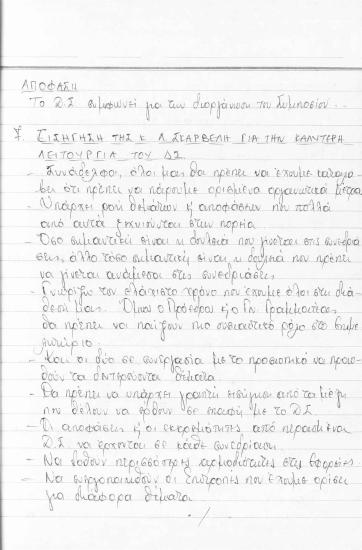 ΑΠΟΦΑΣΗ
Το Δ.Σ συμφωνεί για την διοργάνωση του Συμποσίου.
7. ΕΙΣΗΓΗΣΗ ΤΗΣ Κ Λ ΣΚΑΡΒΕΛΗ ΓΙΑ ΤΗΝ ΚΑΛΥΤΕΡΗ
ΛΕΙΤΟΥΡΓΙΑ ΤΟΥ ΔΣ
- Συνάδελφοι, όλοι μας θα πρέπει να έχουμε καταλά-
βει ότι πρέπει να πάρουμε ορισμένα οργανωτικά μέτρα
- Υπάρχει ροή θεμάτων ή αποφάσεων που πολλά
από αυτά ξεχνιούνται στην πορεία
- Όσο σημαντική είναι η δουλειά που γίνεται στις συνεδρι-
άσεις, άλλο τόσο σημαντική είναι η δουλειά που πρέπει
να γίνεται ανάμεσα στις συνεδριάσεις
- Γνωρίζω τον ελάχιστο χρόνο που έχουμε όλοι στη διά-
θεσή μας. Όμως ο Πρόεδρος κι ο Γεν Γραμματέας
θα πρέπει να παίξουν πιο ουσιαστικό ρόλο στο Επιμε-
λητήριο.
- Και οι δύο σε συνεργασία με το προσωπικό να προω-
θούν τα θέματα
- Θα πρέπει να υπάρχει γραπτή εισήγηση από τα μέλη
που θέλουν να έρθουν σε επαφή με το Δ.Σ.
- Οι αποφάσεις κι οι εκκρεμότητες από περασμένα
Δ.Σ. να έρχονται σε κάθε συνεδρίαση.
- Να δοθούν περισσότερες αρμοδιότητες στις Εφορείες
- Να ενεργοποιηθούν οι επιτροπές που έχουμε ορίσει
για διάφορα θέματα
./